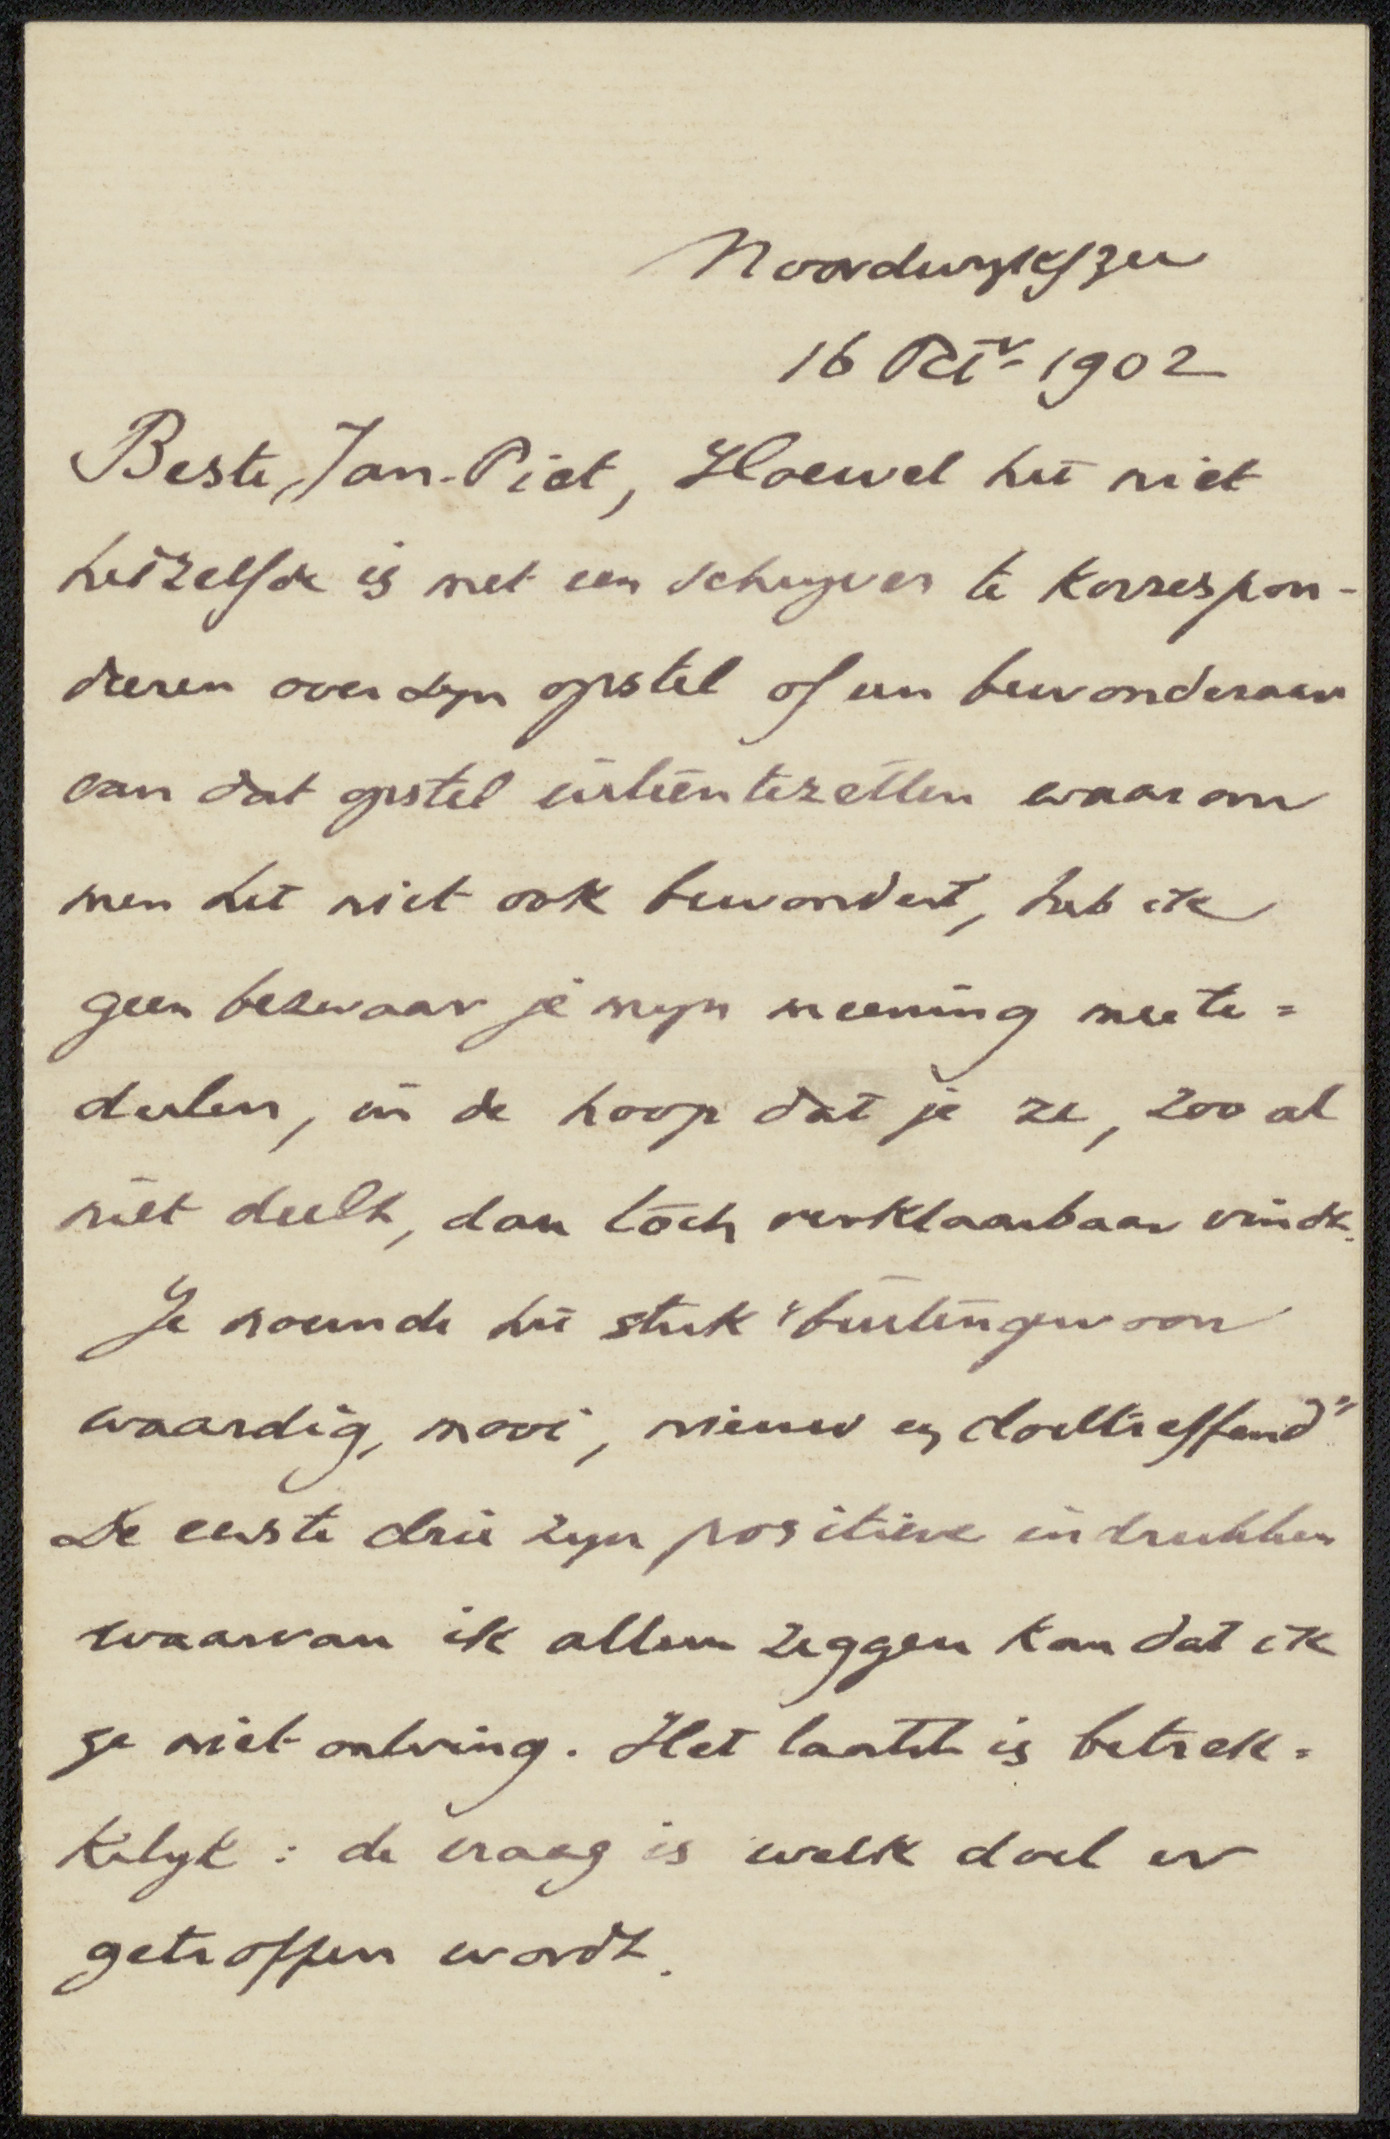 Noordwyk a/zee
16 Oct 1902
Beste Jan-Piet, Hoewel het niet
hetzelfde is met een schryver te korrespon-
deeren over zyn opstel of een bewonderaar
van dat opstel uiteentezetten waarom
men het niet ook bewondert, heb ik
geen bezwaar je myn meening meete=
deelen, in de hoop dat je ze, zoo al
niet deelt, dan toch verklaarbaar vindt.
Je noemde het stuk "buitengewoon
waardig, mooi, nieuw en doeltreffend".
De eerste drie zyn positieve indrukken
waarvan ik alleen zeggen kan dat ik
ze niet ontving. Het laatste is betrek=
kelyk: de vraag is welk doel er
getroffen wordt.